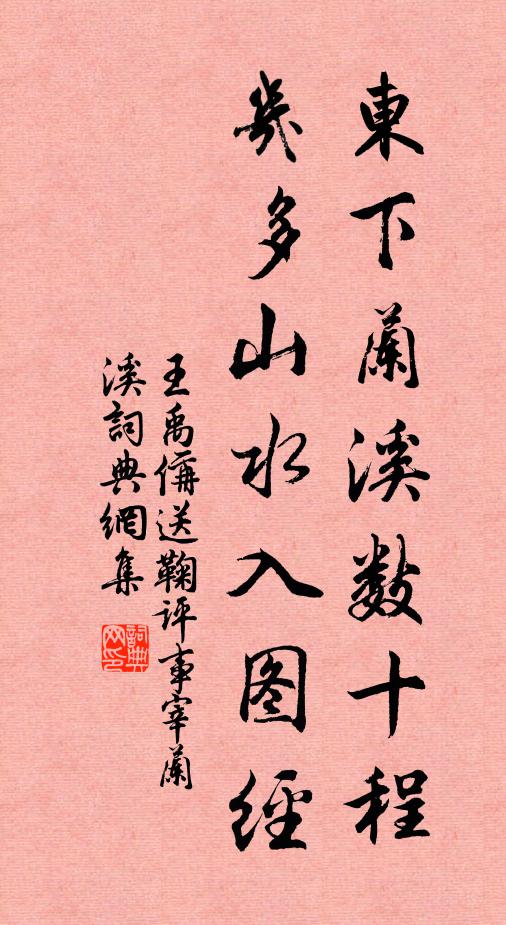 東下蘭溪數十程
幾多山水入图經
王禹偁送鞠評事宰蘭
溪詞典網集
詞典网印